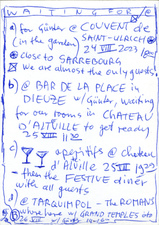 WAITING FOR / @
a) for Günter @ COUVENT de
(in the garden) SAINT-ULRICH
24 VIII 2003
@ close to SARREBOURG
we are almost the only guests
b) @ BAR DE LA PLACE in
DIEUZE w/ Günter, waiting
for our rooms in CHATEAU
D'ALVILLE to get ready
25 VIII 11 30
c) apéritifs @ chateau
d'Alville 25 VIII 19 30
- then the FESTIVE diner
with all guests
d) @ TARQUIMPOL - THE ROMANS
were here w/ GRAND TEMPLES etc